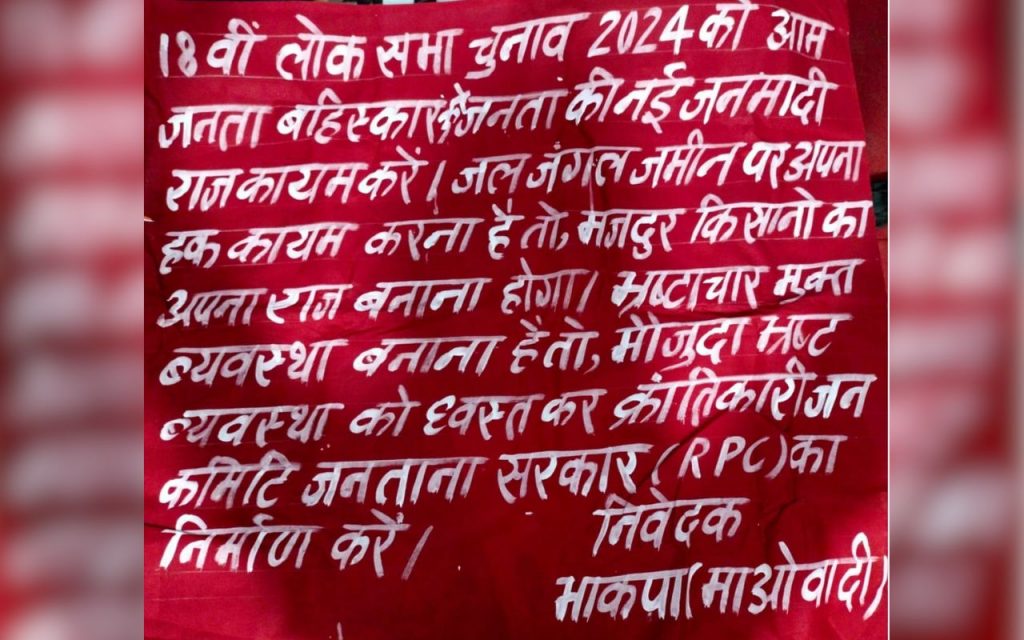 18वीं लोक सभा चुनाव 2024 को आम
जनता बहिस्कार करे जनता की नई जनमादी
राज कायम करें। जल जंगल जमीन पर अपना
हक कायम करना हैं तो, मजदुर किसानो का
अपना राज बनाना होगा। भ्रष्टाचार मुक्त
ब्यवस्था बनाना हैं तो, मौजुदा भ्रष्ट
ब्यवस्था को ध्वस्त कर क्रांतिकारी जन
कमिटि जनताना सरकार (RPC) का
निर्माण करें।
निवेदक
भाकपा (माओवादी)